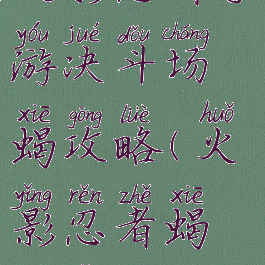 yóu jué dǒu chǎng
游决斗场
xiē gōng lüè huǒ
蝎攻略(火
yǐng rěn zhě xiē
影忍者蝎